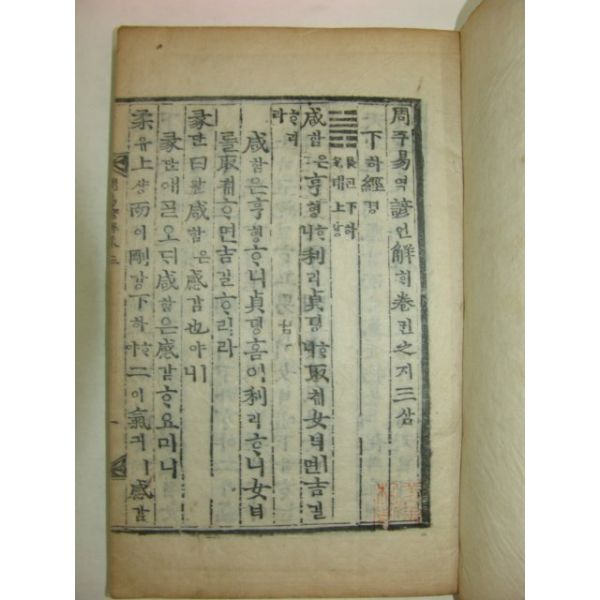 周쥬易역諺언解ᄒᆡ卷권之지三삼
下하經경
艮간下하
兌태上샹
咸함은亨형ᄒᆞ니利리貞뎡ᄒᆞ니取ᄎᆔ女녀ᄒᆞ면吉길
ᄒᆞ리라
咸함은亨형ᄒᆞ니貞뎡홈이利리ᄒᆞ니女녀
를取ᄎᆔᄒᆞ면吉길ᄒᆞ리라
彖단曰왈咸함은感감也야ㅣ니
彖단애ᄀᆞᆯ오ᄃᆡ咸함은感감ᄒᆞ요미니
柔유上샹而이剛강下하ᄒᆞ야二이氣긔ㅣ感감